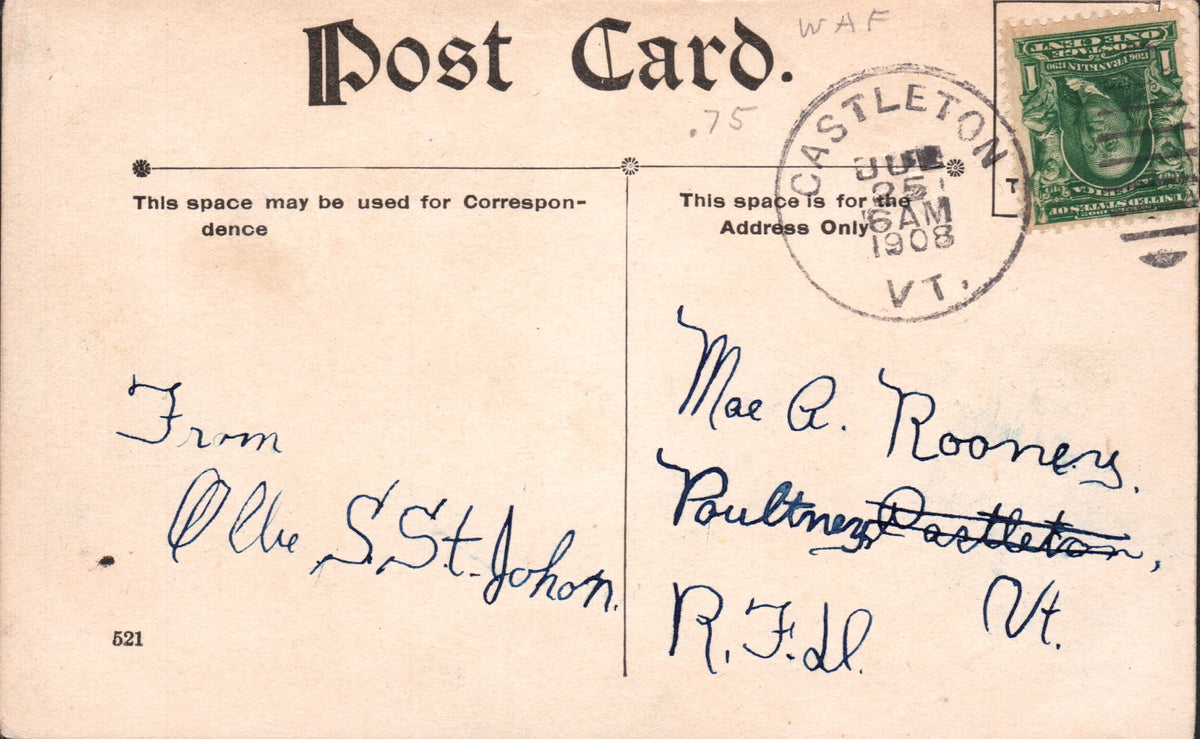 Post Card.
WAF
.75
CASTLETON
JUL
25
6AM
1908
VT.
ONE CENT
POSTAGE
1 1
1706 FRANKLIN 1790
UNITED STATES OF
This space may be used for Correspon-
dence
This space is for the
Address Only
From
Ollie S. St. John.
Mae A. Rooney,
Poultney, Castleton,
R.F.D. Vt.
521